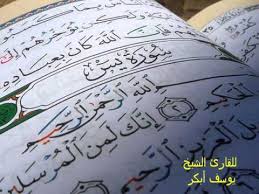 يُؤَخِّرُهُمْ إِلَىٰ
ٱللَّهَ كَانَ بِعِبَادِهِ
سُورَةُ يسٓ
ٱللَّهِ ٱلرَّحْمَٰنِ ٱلرَّحِيمِ
ٱلْحَكِيمِ ٢ إِنَّكَ لَمِنَ ٱلْمُرْسَلِينَ
ٱلْعَزِيزِ ٱلرَّحِيمِ
للقارئ الشيخ
يوسف أبكر